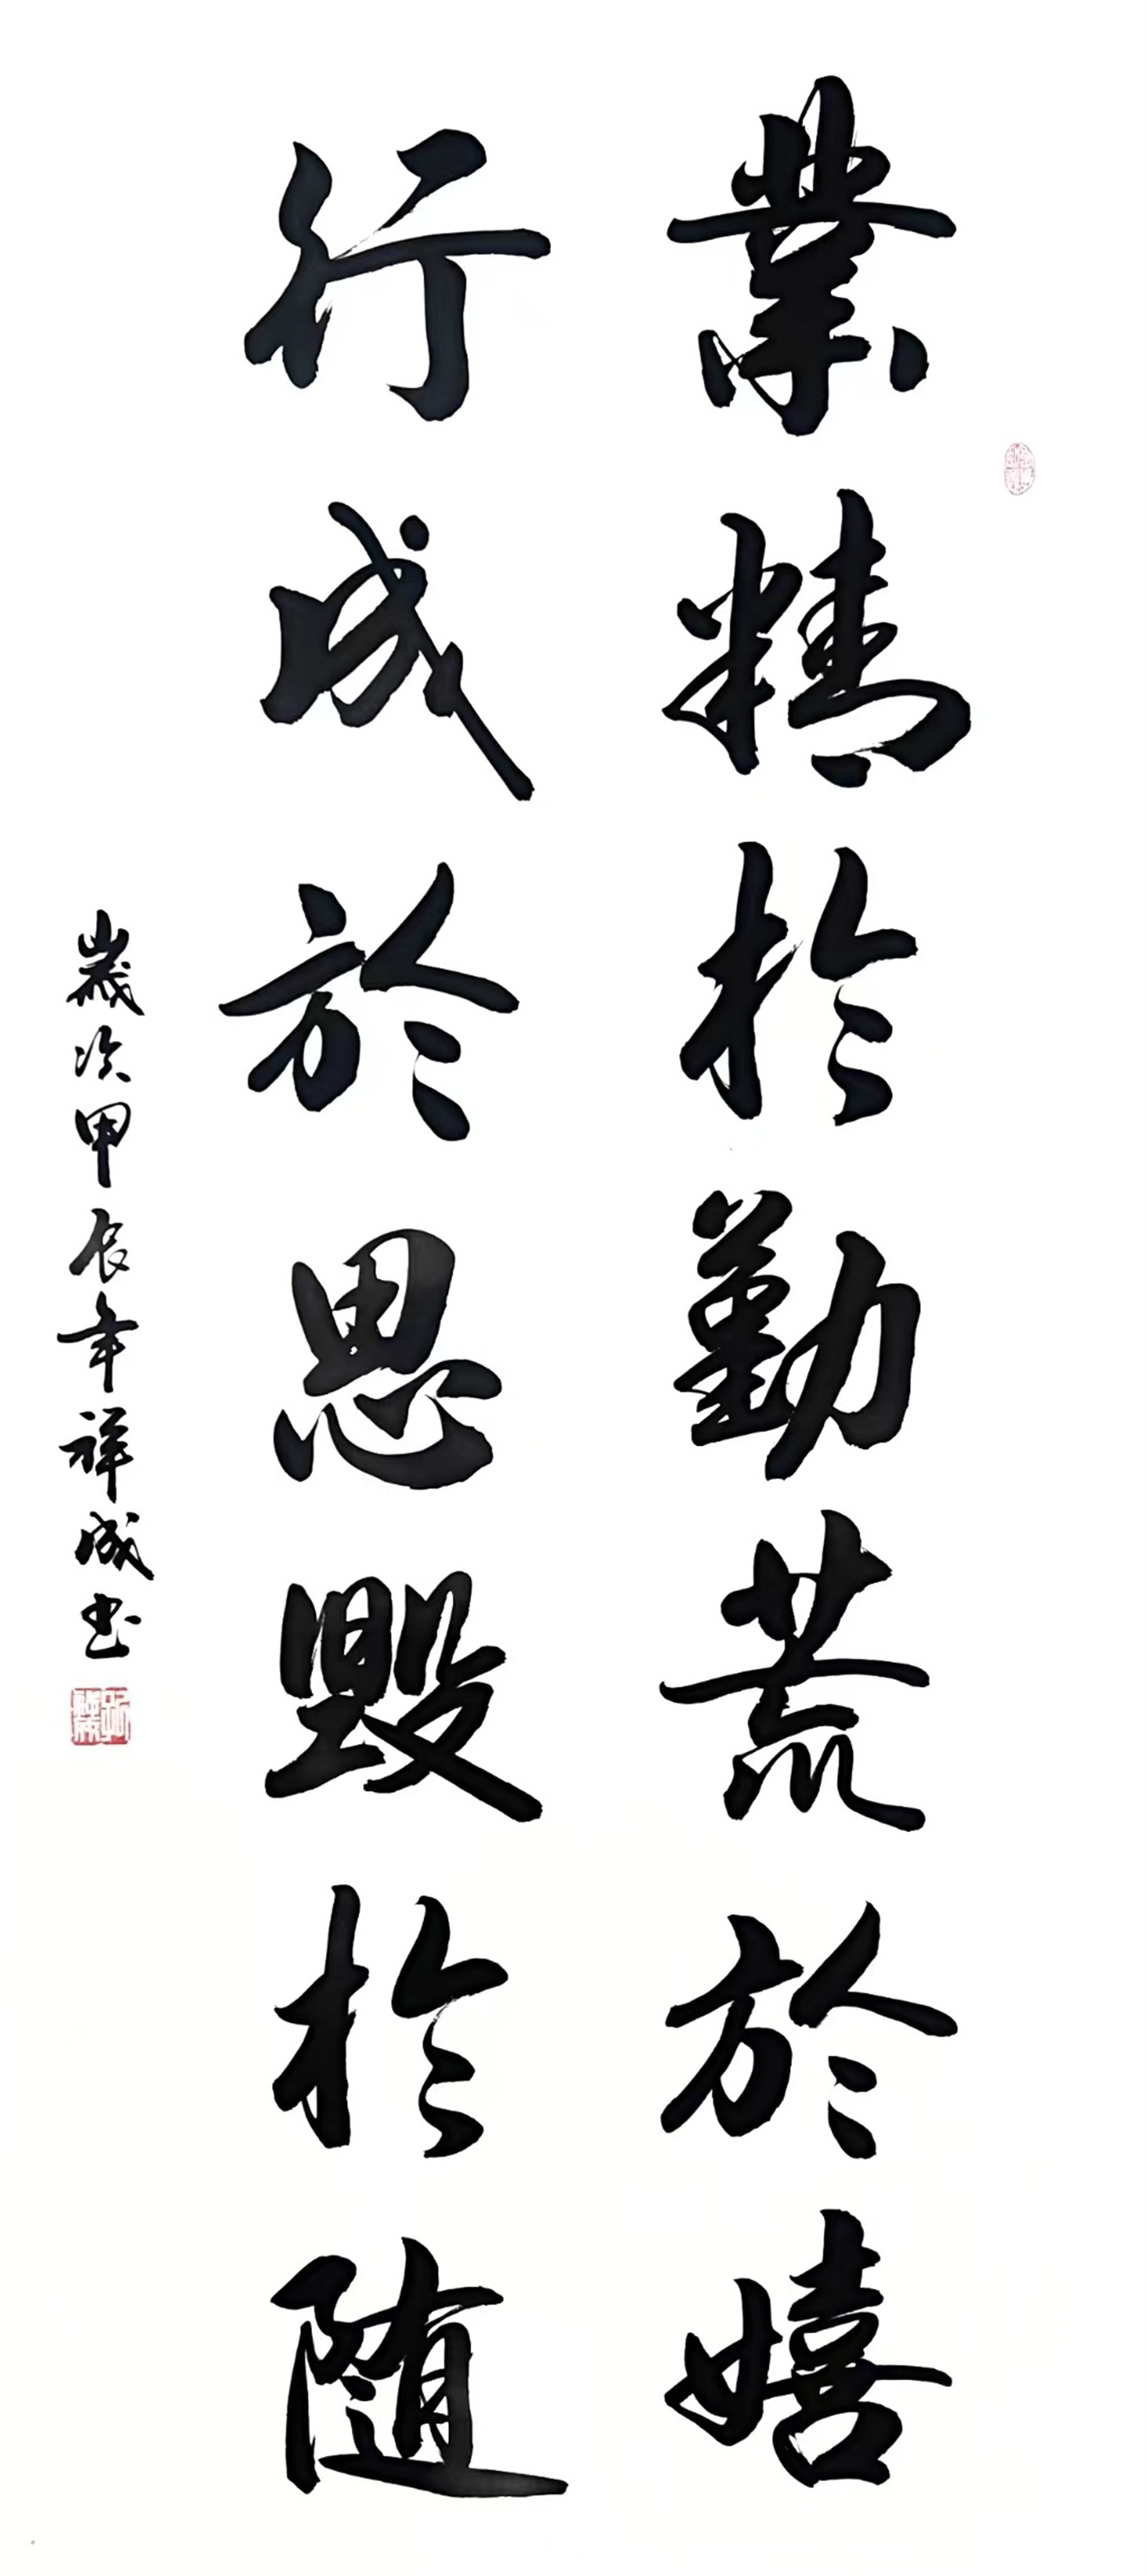 業精於勤荒於嬉
行成於思毀於随
歲次甲辰年祥成书